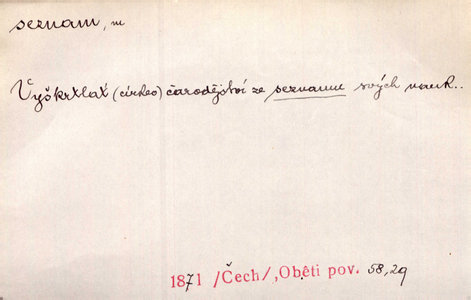 seznam, m
Vyškrtlať (církev) čarodějství ze seznamu svých nauk..
1871 /Čech/, Oběti pov. 58,29